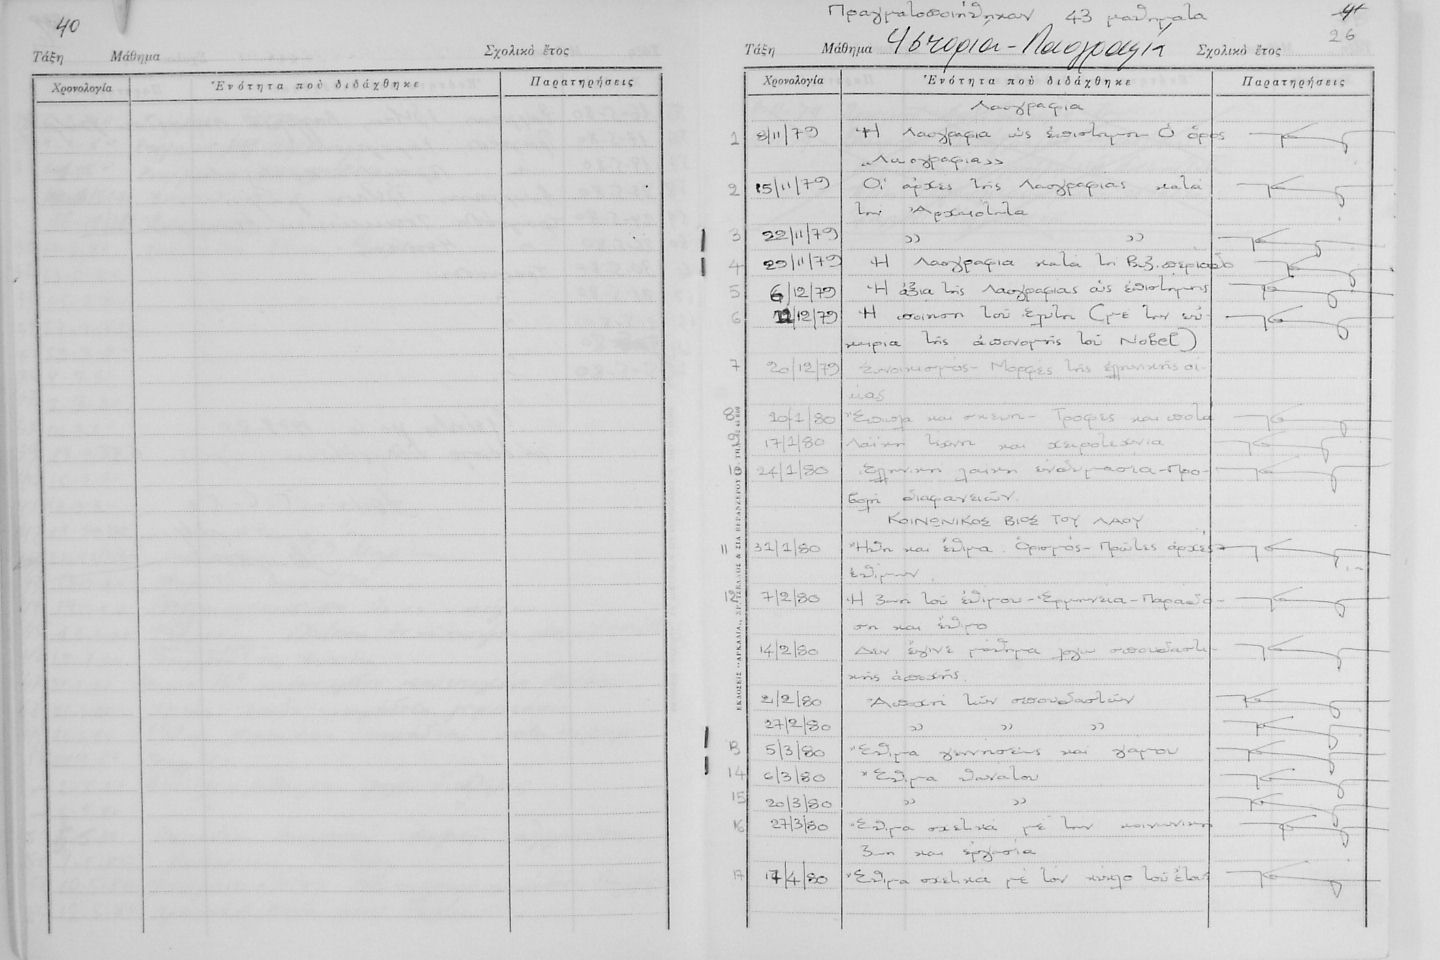 40
Τάξη Μάθημα Σχολικὸ ἔτος
Χρονολογία Ἑνότητα ποὺ διδάχθηκε Παρατηρήσεις
Πραγματοποιήθηκαν 43 μαθήματα
26
Τάξη Μάθημα Ἱστορία - Λαογραφία Σχολικὸ ἔτος
Χρονολογία Ἑνότητα ποὺ διδάχθηκε Παρατηρήσεις
Λαογραφία
1 8/11/79 Ἡ Λαογραφία ὡς ἐπιστήμη. Ὁ ὅρος
«Λαογραφία»
2 15/11/79 Οἱ ἀρχές τῆς Λαογραφίας κατά
την Ἀρχαιότητα
3 22/11/79 ,, ,,
4 29/11/79 Ἡ Λαογραφία κατά τη Βυζ. περίοδο
5 6/12/79 Ἡ ἀξία τῆς Λαογραφίας ὡς ἐπιστήμης
6 12/12/79 Ἡ ποίηση τοῦ Ἐλύτη (μέ την εὐ
καιρία τῆς ἀπονομῆς τοῦ Nobel)
7 20/12/79 Συνοικισμός - Μορφές τῆς ἑλληνικῆς οἰ-
κίας
8 10/1/80 Ἔπιπλα και σκεύη - Τροφές και ποτά
9 17/1/80 Λαϊκή τέχνη και χειροτεχνία
10 24/1/80 Ἑλληνική λαϊκή ἐνδυμασία - Προ-
βολή διαφανειῶν.
ΚΟΙΝΩΝΙΚΟΣ ΒΙΟΣ ΤΟΥ ΛΑΟΥ
11 31/1/80 Ἤθη και ἔθιμα. Ὁρισμός - Πρῶτες ἀρχές
ἐθίμων.
12 7/2/80 Ἡ ζωή τοῦ ἐθίμου - Ἑρμηνεία - Παράδο-
ση και ἔθιμο
14/2/80 Δεν ἔγινε μάθημα λόγω σπουδαστι-
κῆς ἀποχῆς.
2/2/80 Ἀποχή τῶν σπουδαστῶν
27/2/80 ,, ,, ,,
13 5/3/80 Ἔθιμα γεννήσεως και γάμου
14 6/3/80 Ἔθιμα θανάτου
15 20/3/80 ,, ,,
16 27/3/80 Ἔθιμα σχετικά μέ την κοινωνική
ζωή και ἐργασία
17 17/4/80 Ἔθιμα σχετικά μέ τόν κύκλο τοῦ ἔτους